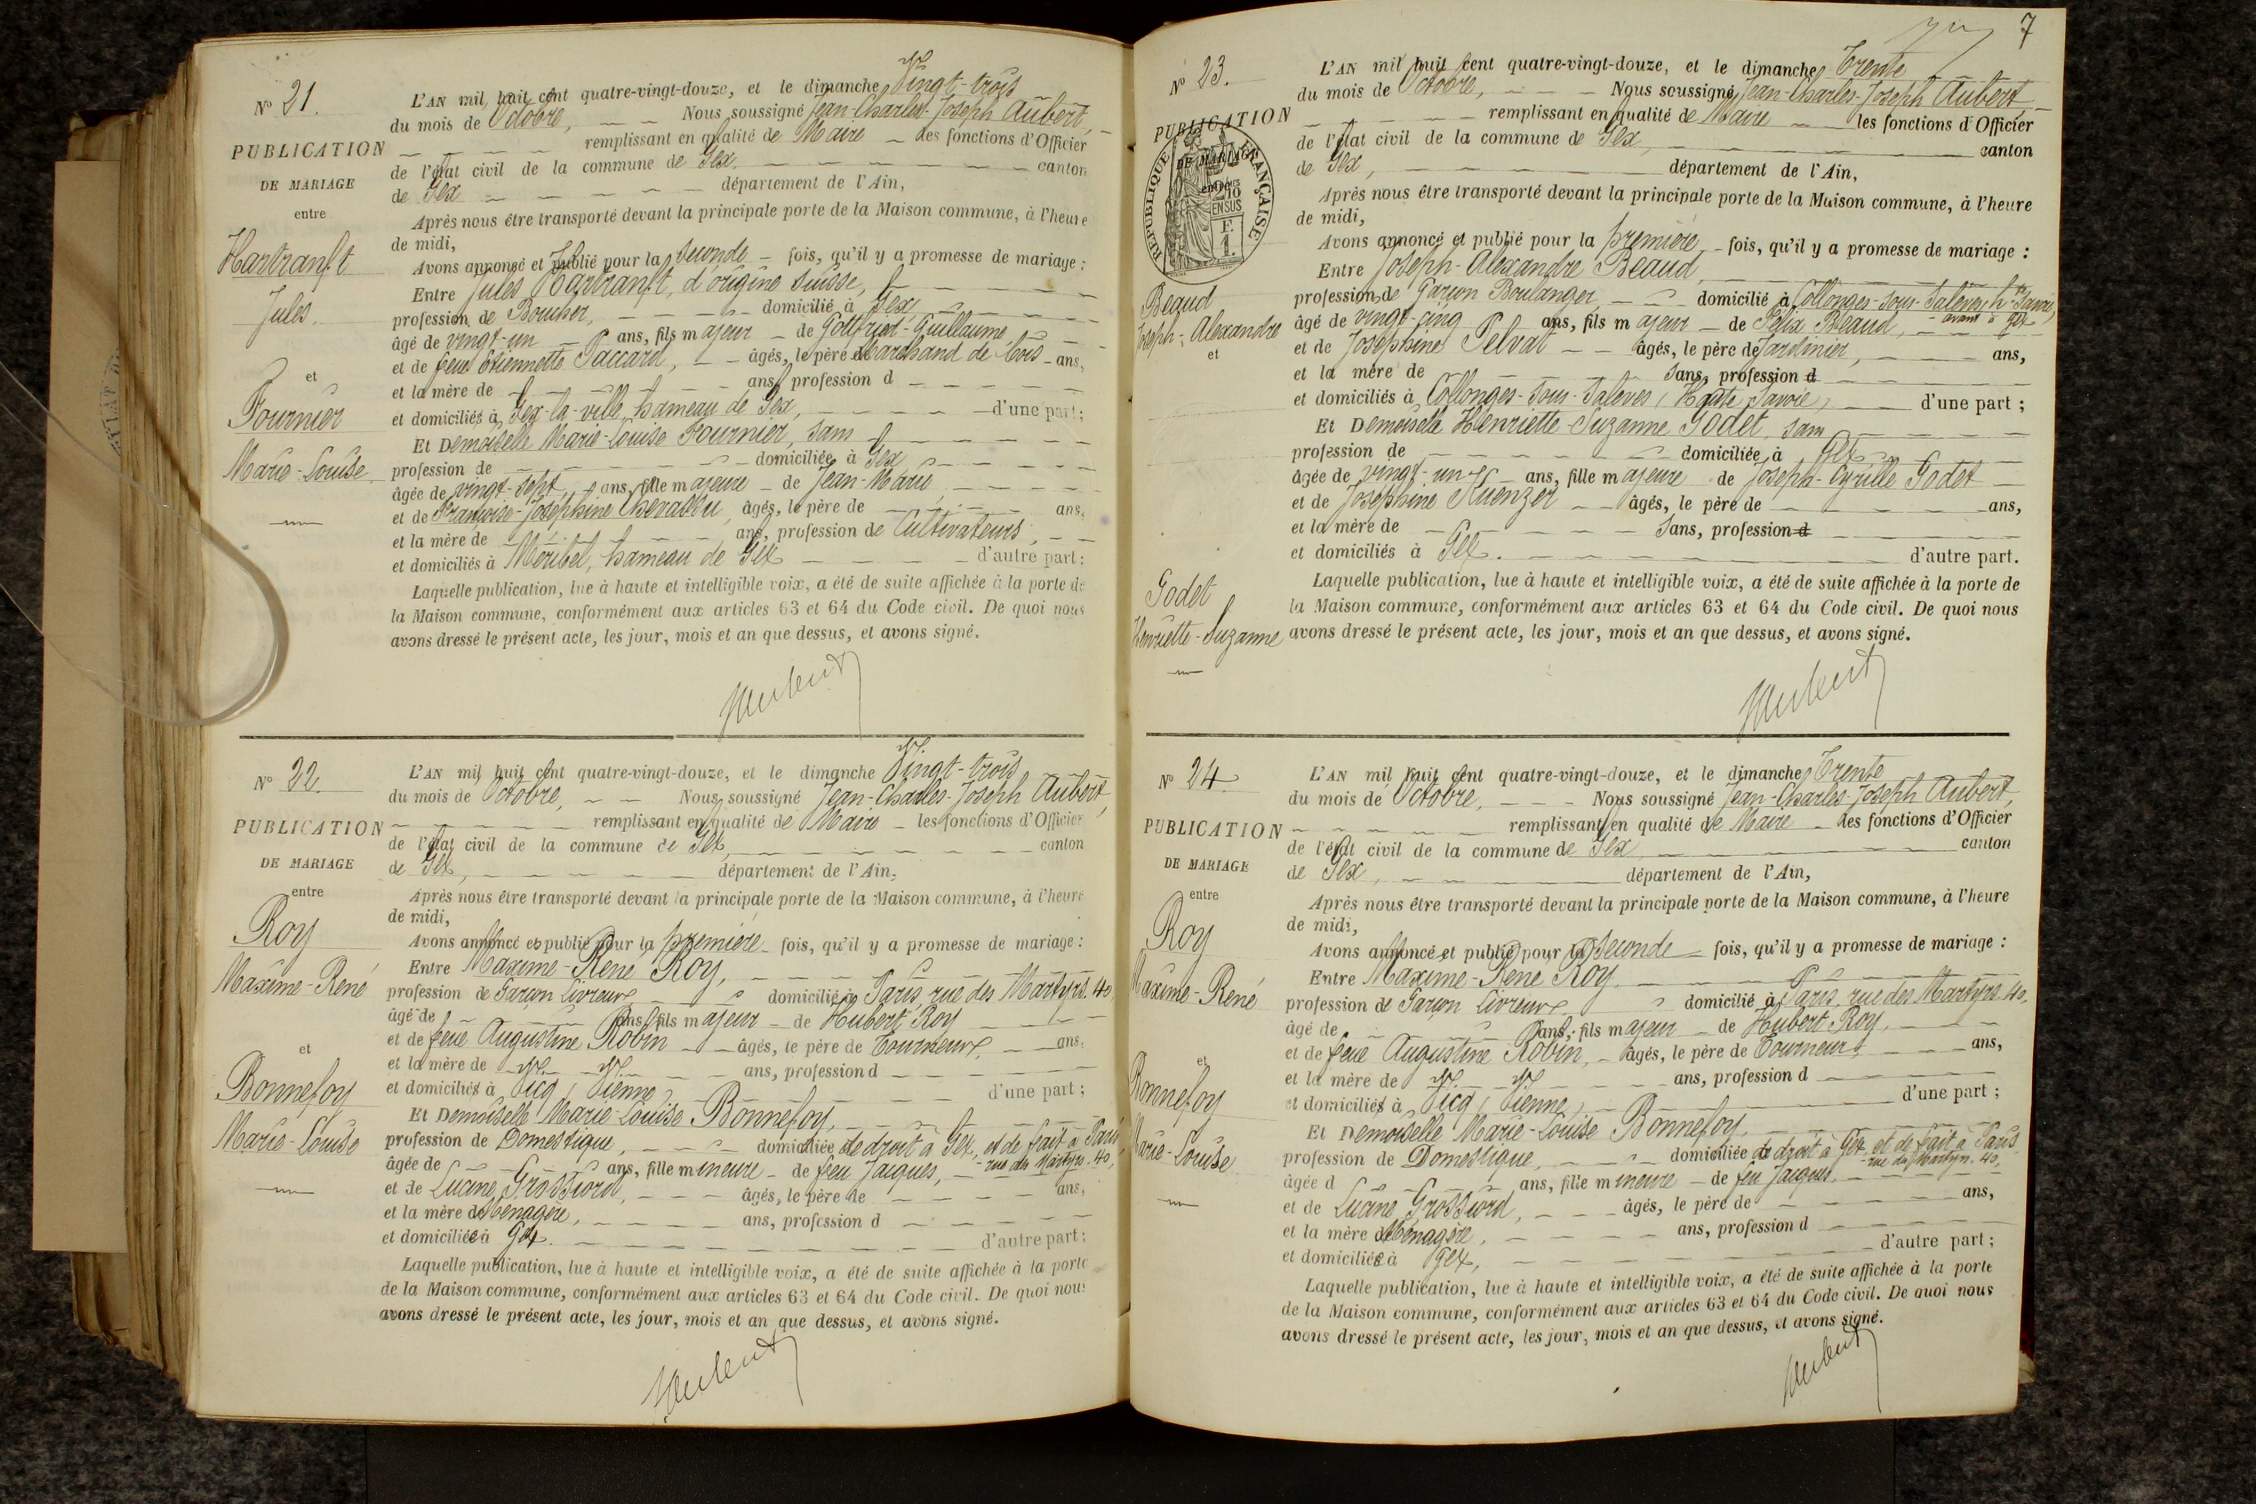 N° 21.
PUBLICATION
DE MARIAGE
entre
Hartranft
Jules.
et
Fournier
Marie-Louise
L'AN mil huit cent quatre-vingt-douze, et le dimanche Vingt-trois
du mois de Octobre, Nous soussigné Jean-Charles-Joseph Aubert,
remplissant en qualité de Maire les fonctions d'Officier
de l'état civil de la commune de Gex canton
de Gex département de l'Ain,
Après nous être transporté devant la principale porte de la Maison commune, à l'heure
de midi,
Avons annoncé et publié pour la seconde fois, qu'il y a promesse de mariage :
Entre Jules Hartranft, d'origine suisse,
profession de Boucher, domicilié à Gex
âgé de vingt-un ans, fils majeur de Gottfried-Guillaume
et de feue Etiennette Paccard, âgés, le père de Marchand de bois ans,
et la mère de ans, profession d
et domiciliés à Gex-la-ville, hameau de Gex, d'une part ;
Et Demoiselle Marie-Louise Fournier, sans
profession de domiciliée à Gex
âgée de vingt-sept ans, fille majeure de Jean-Marie,
et de Françoise-Joséphine Chevallu, âgés, le père de ans,
et la mère de ans, profession de Cultivateurs,
et domiciliés à Meribel, hameau de Gex d'autre part :
Laquelle publication, lue à haute et intelligible voix, a été de suite affichée à la porte de
la Maison commune, conformément aux articles 63 et 64 du Code civil. De quoi nous
avons dressé le présent acte, les jour, mois et an que dessus, et avons signé.
Aubert
N° 22.
PUBLICATION
DE MARIAGE
entre
Roy
Maxime-René
et
Bonnefoy
Marie-Louise
L'AN mil huit cent quatre-vingt-douze, et le dimanche Vingt-trois
du mois de Octobre, Nous soussigné Jean-Charles-Joseph Aubert,
remplissant en qualité de Maire les fonctions d'Officier
de l'état civil de la commune de Gex, canton
de Gex, département de l'Ain,
Après nous être transporté devant la principale porte de la Maison commune, à l'heure
de midi,
Avons annoncé et publié pour la première fois, qu'il y a promesse de mariage :
Entre Maxime-René Roy,
profession de Garçon livreur domicilié à Paris, rue des Martyrs. 40
âgé de ans, fils majeur de Hubert Roy
et de feue Augustine Robin âgés, le père de Tourneur, ans,
et la mère de ans, profession d
et domiciliés à Vicq, Vienne d'une part ;
Et Demoiselle Marie-Louise Bonnefoy,
profession de Domestique, domiciliée de droit à Gex, et de fait à Paris,
rue des Martyrs. 40,
âgée de ans, fille mineure de feu Jacques,
et de Lucine Grossiord, âgés, le père de ans,
et la mère de Ménagère, ans, profession d
et domiciliée à Gex. d'autre part :
Laquelle publication, lue à haute et intelligible voix, a été de suite affichée à la porte
de la Maison commune, conformément aux articles 63 et 64 du Code civil. De quoi nous
avons dressé le présent acte, les jour, mois et an que dessus, et avons signé.
Aubert
7
N° 23.
PUBLICATION
DE MARIAGE
RÉPUBLIQUE FRANÇAISE
2/10
EN SUS
Beaud
Joseph-Alexandre
et
Godet
Henriette-Suzanne
L'AN mil huit cent quatre-vingt-douze, et le dimanche Trente
du mois de Octobre, Nous soussigné Jean-Charles-Joseph Aubert
remplissant en qualité de Maire les fonctions d'Officier
de l'état civil de la commune de Gex, canton
de Gex, département de l'Ain,
Après nous être transporté devant la principale porte de la Maison commune, à l'heure
de midi,
Avons annoncé et publié pour la première fois, qu'il y a promesse de mariage :
Entre Joseph-Alexandre Beaud,
profession de Garçon Boulanger domicilié à Collonges-sous-Salèves, hte Savoie,
avant à Gex
âgé de vingt-cinq ans, fils majeur de Félix Beaud,
et de Joséphine Pelvat âgés, le père de Jardinier, ans,
et la mère de sans, profession d
et domiciliés à Collonges-sous-Salèves, (Haute Savoie) d'une part ;
Et Demoiselle Henriette-Suzanne Godet, sans
profession de domiciliée à Gex
âgée de vingt-un ans, fille majeure de Joseph-Cyrille Godet
et de Joséphine Kuenzer âgés, le père de ans,
et la mère de sans, profession d
et domiciliés à Gex. d'autre part.
Laquelle publication, lue à haute et intelligible voix, a été de suite affichée à la porte de
la Maison commune, conformément aux articles 63 et 64 du Code civil. De quoi nous
avons dressé le présent acte, les jour, mois et an que dessus, et avons signé.
Aubert
N° 24.
PUBLICATION
DE MARIAGE
entre
Roy
Maxime-René
et
Bonnefoy
Marie-Louise
L'AN mil huit cent quatre-vingt-douze, et le dimanche Trente
du mois de Octobre, Nous soussigné Jean-Charles-Joseph Aubert,
remplissant en qualité de Maire les fonctions d'Officier
de l'état civil de la commune de Gex canton
de Gex, département de l'Ain,
Après nous être transporté devant la principale porte de la Maison commune, à l'heure
de midi,
Avons annoncé et publié pour la seconde fois, qu'il y a promesse de mariage :
Entre Maxime-René Roy,
profession de Garçon livreur domicilié à Paris, rue des Martyrs. 40.
âgé de ans, fils majeur de Hubert Roy,
et de feue Augustine Robin, âgés, le père de Tourneur, ans,
et la mère de ans, profession d
et domiciliés à Vicq, (Vienne) d'une part ;
Et Demoiselle Marie-Louise Bonnefoy,
profession de Domestique, domiciliée de droit à Gex, et de fait à Paris
rue des Martyrs. 40,
âgée d ans, fille mineure de feu Jacques,
et de Lucine Grossiord, âgés, le père de ans,
et la mère de Ménagère, ans, profession d
et domiciliée à Gex, d'autre part ;
Laquelle publication, lue à haute et intelligible voix, a été de suite affichée à la porte
de la Maison commune, conformément aux articles 63 et 64 du Code civil. De quoi nous
avons dressé le présent acte, les jour, mois et an que dessus, et avons signé.
Aubert